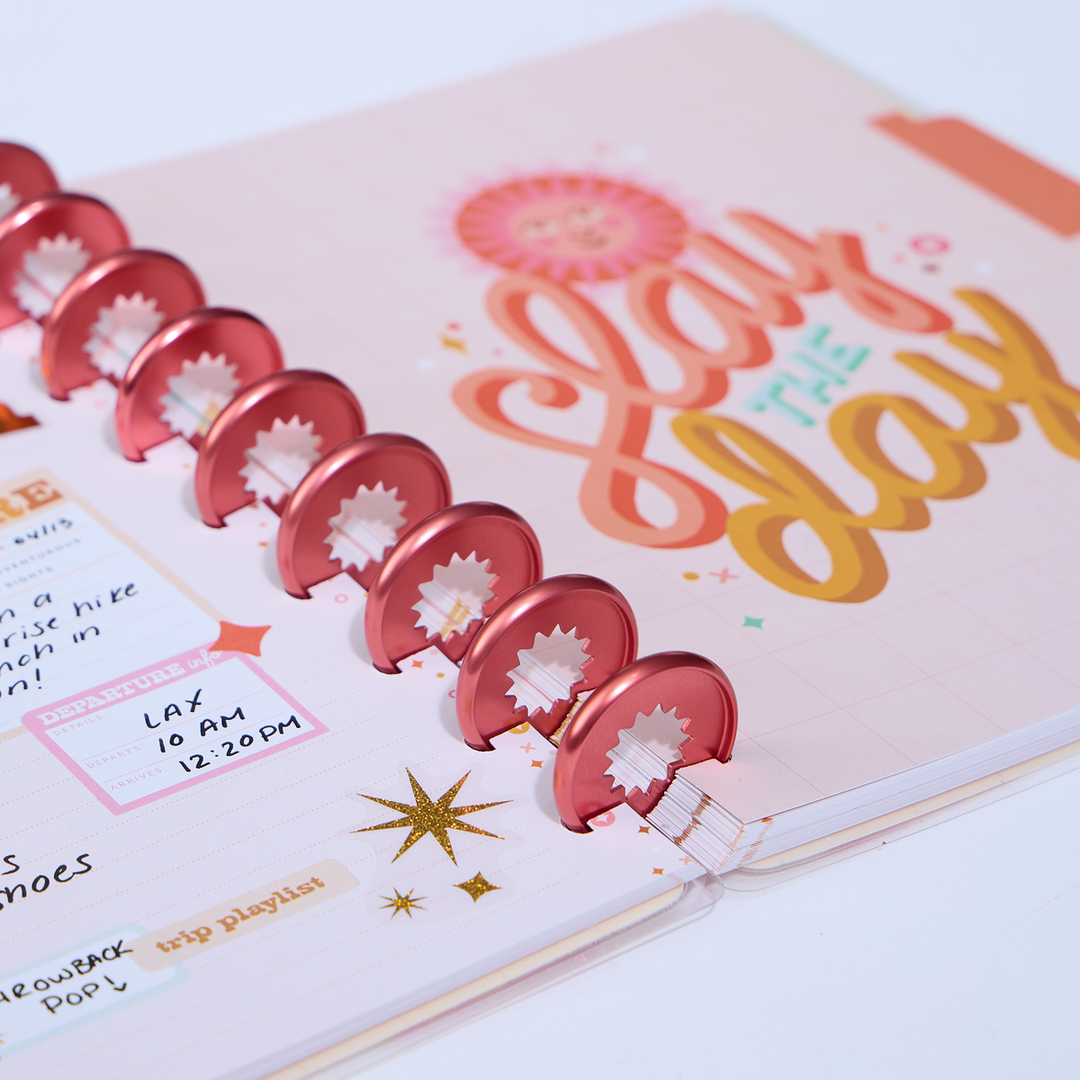 Slay
THE
day
RE
04/13
SIGHTS
n a
rise hike
nch in
on!
DEPARTURE info
DETAILS
LAX
DEPARTS 10 AM
ARRIVES 12:20 PM
s
hoes
trip playlist
THROWBACK
POP!